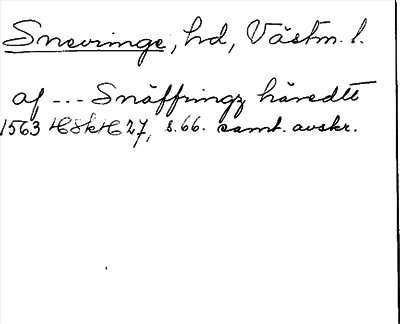 Snevringe, hd, Västm. l.
af --- Snäffringz häredtt
1563 HSkH 27, s. 66. samt. avskr.